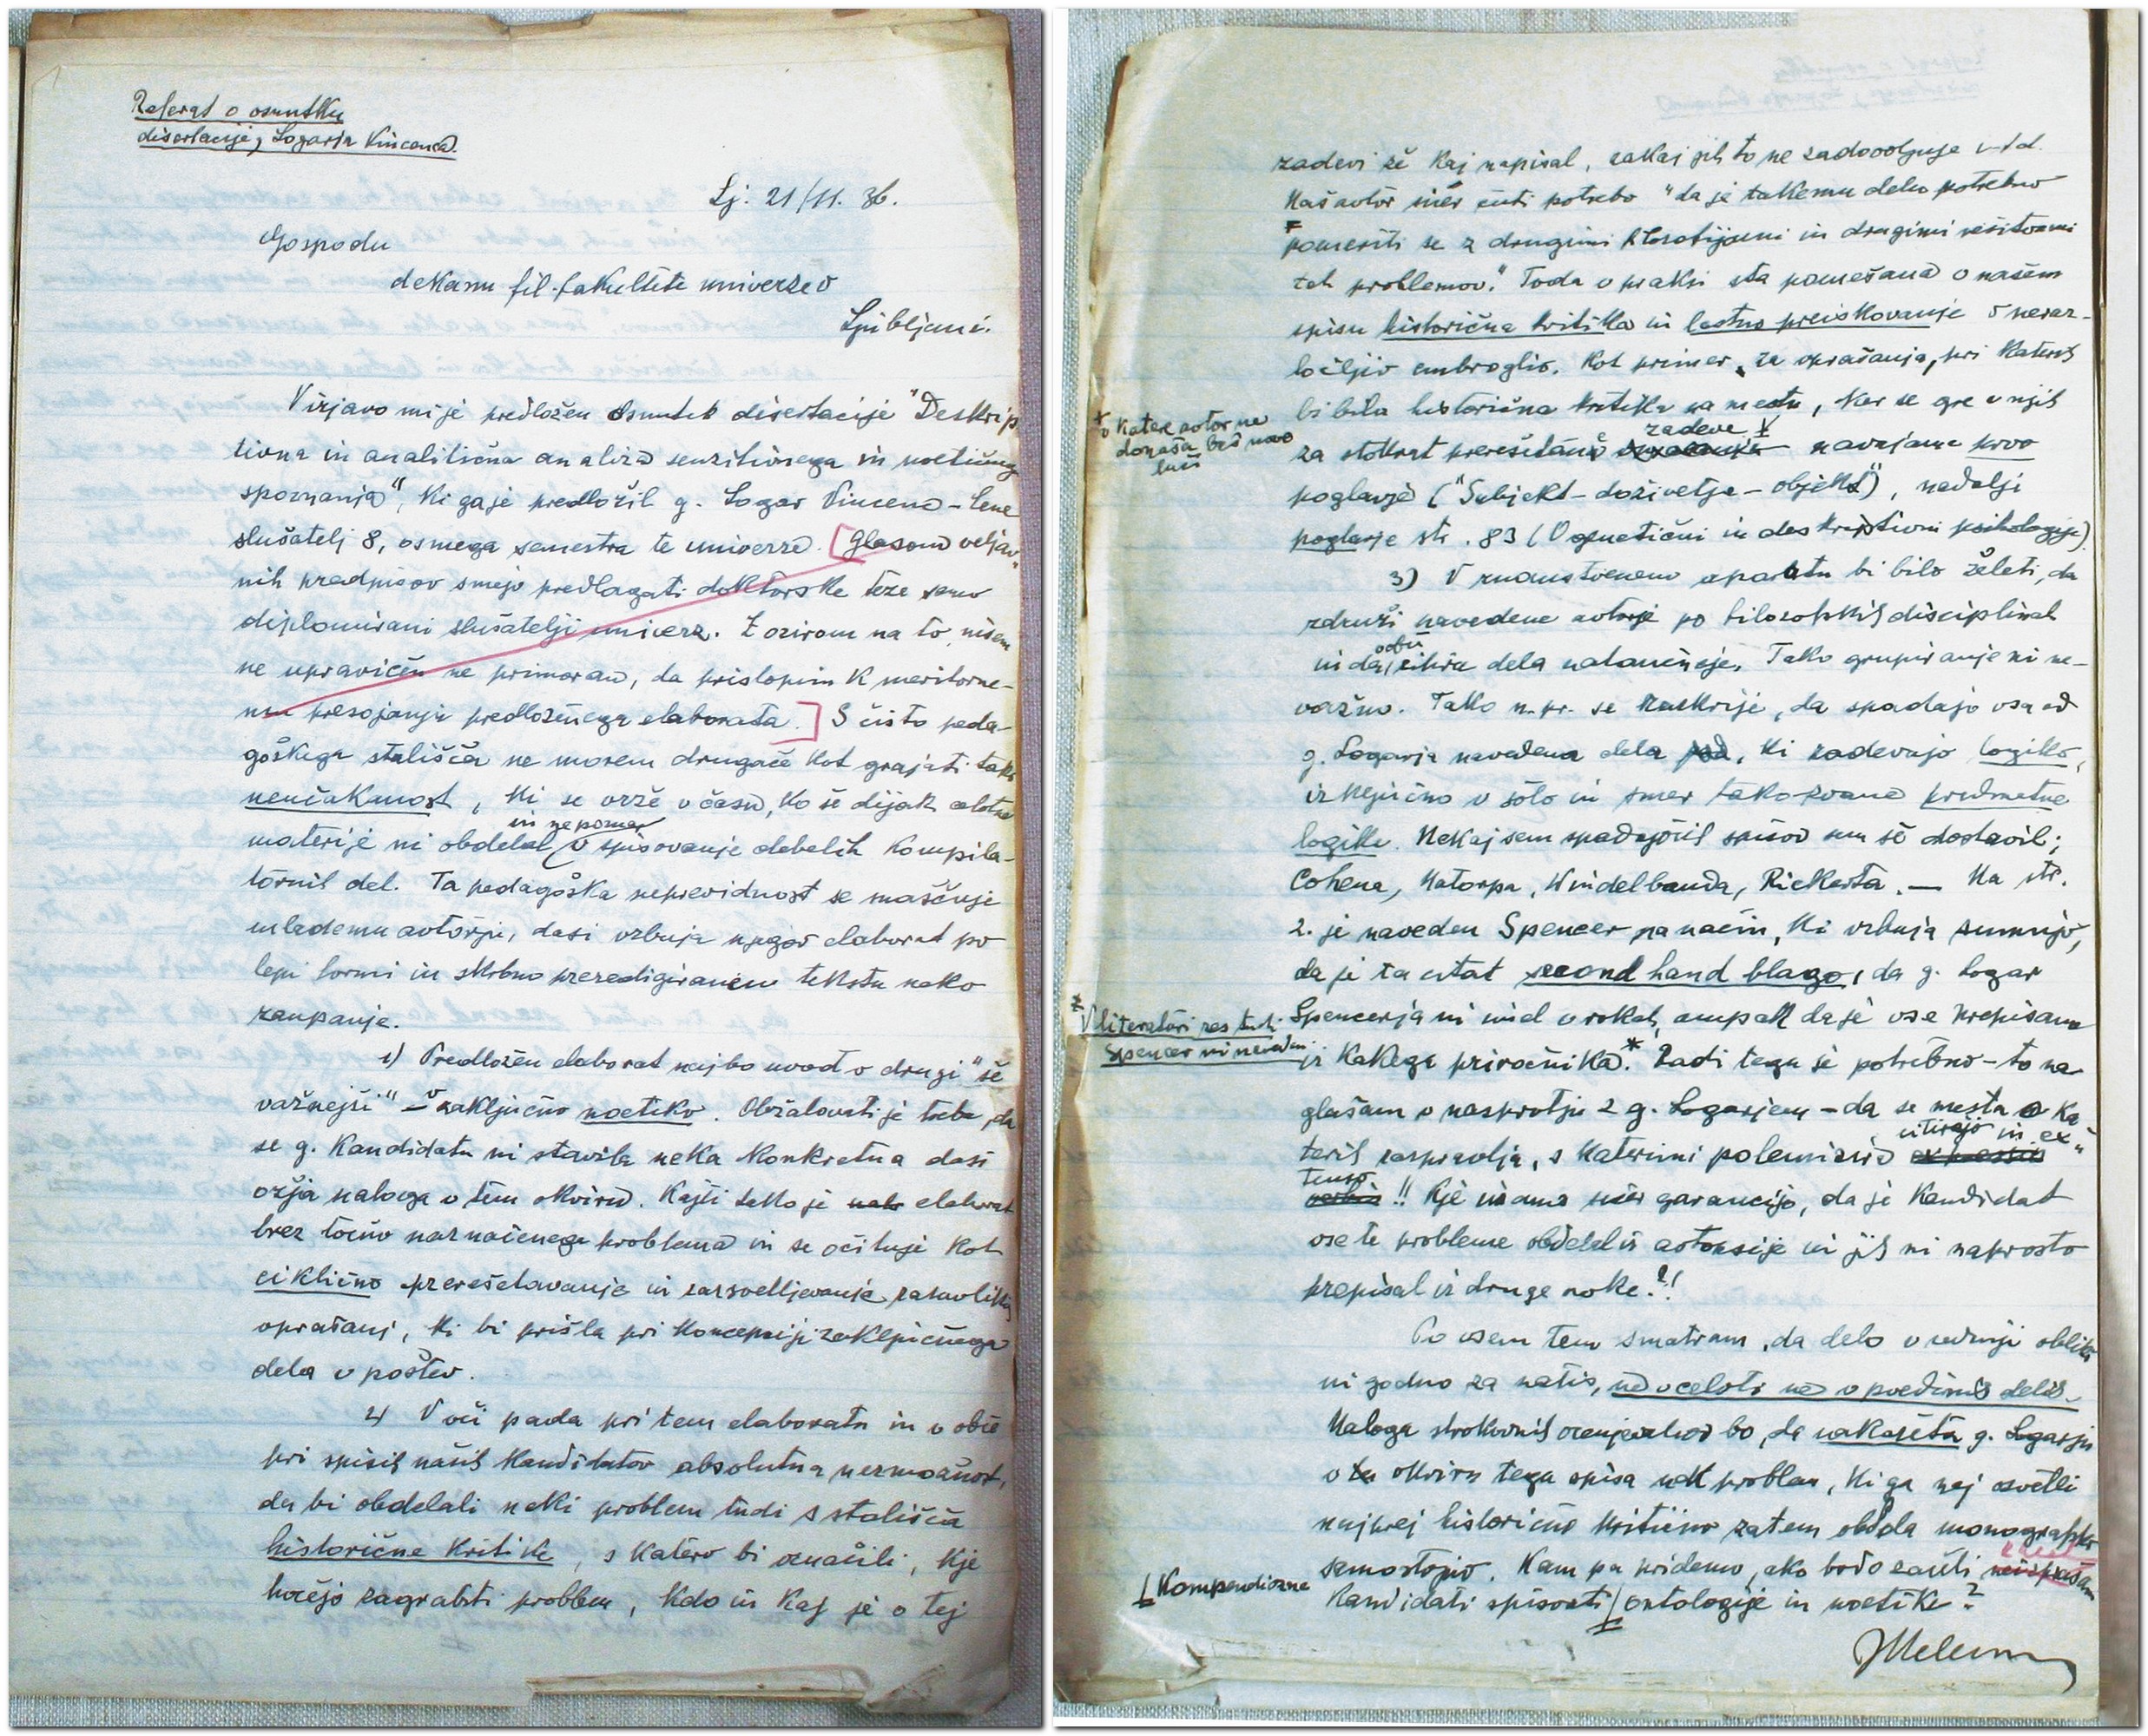 Referat o osnutku
disertacije, Logarja Vincenca.
Lj. 21/11. 36.
Gospodu
dekanu fil. fakultete univerze v
Ljubljani.
V izjavo mi je predložen osnutek disertacije "Deskrip
tivna in analitična analiza senzitivnega in noetičnega
spoznanja", ki ga je predložil g. Logar Vincenc - Cene
slušatelj 8, osmega semestra te univerze. [Glasom veljav-
nih predpisov smejo predlagati doktorske teze samo
diplomirani slušatelji univerz. Z ozirom na to, nisem
ne upravičen ne primoran, da pristopim k meritorne-
mu presojanju predloženega elaborata.] S čisto peda-
goškega stališča ne morem drugače kot grajati tako
neučakanost, ki se vrže v času, ko še dijak celotne
in ne pozna
materije ni obdelal v spisovanje debelih kompila-
tornih del. Ta pedagoška neprevidnost se maščuje
mlademu avtorju, dasi vzbuja njegov elaborat po
lepi formi in skrbno preredigiranem tekstu neko
zaupanje.
1) Predložen elaborat najbo uvod v drugi "še
važnejši" – v zaključno noetiko. Obžalovati je treba, da
se g. kandidatu ni stavila neka konkretna dasi
ožja naloga v tem okviru. Kajti tako je elaborat
brez točno naznačenega problema in se očituje kot
ciklično prerešetavanje in razsvetljevanje raznolikih
vprašanj, ki bi prišla pri koncepciji zaključnega
dela v poštev.
2) V oči pada pri tem elaboratu in v obče
pri spisih naših kandidatov absolutna nezmožnost,
da bi obdelali neki problem tudi s stališča
historične kritike, s katero bi označili, kje
hočejo zagrabiti problem, kdo in kaj je o tej
zadevi že kaj napisal, zakaj jih to ne zadovoljuje i-t-d.
Naš avtor sicer čuti potrebo "da je takemu delu potrebno
pomeriti se z drugimi filozofijami in drugimi rešitvami
teh problemov." Toda v praksi sta pomešana v našem
spisu historična kritika in lastno preiskovanje v neraz-
ločljiv embroglio. Kot primer, za vprašanja, pri katerih
bi bila historična kritika na mestu, ker se gre v njih
zadeve
za stokrat prerešetane navajamo prvo
+ o katere avtor ne
donaša baš novo
luči
poglavje ("Subjekt – doživetje – objekt"), nadalje
poglavje str. 83 (O genetični in deskriptivni psihologiji)
3) V znanstvenem aparatu bi bilo želeti, da
združi navedene avtorje po filozofskih disciplinah
in da citira dela natančneje. Tako grupiranje ni ne-
važno. Tako n.pr. se razkrije, da spadajo vsa od
g. Logarja navedena dela, ki zadevajo logiko,
izključno v šolo in smer tako zvane predmetne
logike. Nekaj sem spadajočih spisov sem še dostavil;
Cohena, Natorpa, Windelbanda, Rickerta. — Na str.
2. je naveden Spencer na način, ki vzbuja sumnjo,
da je ta citat second hand blago, da g. Logar
Spencerja ni imel v rokah, ampak da je vse prepisano
* V literaturi res tudi
Spencer ni naveden
iz kakega priročnika.* Radi tega je potrebno – to na-
glašam v nasprotju z g. Logarjem – da se mesta o ka-
citirajo in ex-
terih razpravlja, s katerimi polemizira
tenso
!! Kje imamo sicer garancijo, da je kandidat
vse te probleme obdelal iz avtopsije in jih ni naprosto
prepisal iz druge roke?!
Po vsem tem smatram, da delo v sedanji obliki
ni godno za natis, ne v celoti ne v poedinih delih.
Naloga strokovnih ocenjevalcev bo, da nakažeta g. Logarju
v okviru tega spisa nek problem, ki ga naj osvetli
najprej historično kritično zatem obdela monografsko
samostojno. Kam pa pridemo, ako bodo začeli
kandidati spisovati / ontologije in noetike?
Kompendiozne